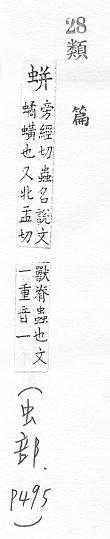 28類篇
蛢
旁經切蟲名說文
𧑐蟥也又北孟切
獸脊蟲也文
一重音一
(虫部. P495)